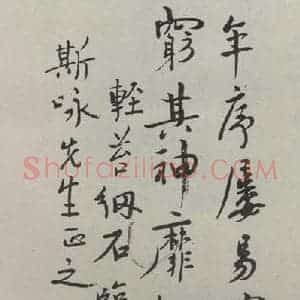 年序屡易
窮其神靡
輊荅綱石臨
斯咏先生正之
Shufaziliao.com